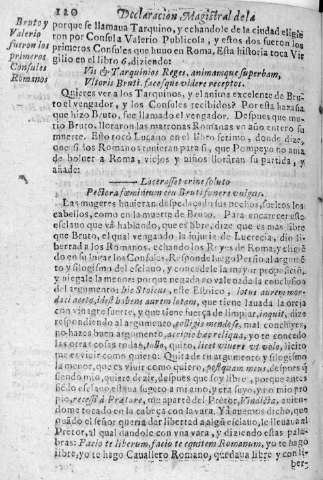 120 Declaracion Magistral de la
Bruto y
Valerio
fueron los
primeros
Consules
Romanos
porque se llamaua Tarquino, y echandole de la ciudad eligie-
ron por Consul a Valerio Publicola, y estos dos fueron los
primeros Consules que huuo en Roma, Esta historia toca Vir
gilio en el libro 6, diziendo:
Vis & Tarquinios Reges, animamque superbam,
Vltoris Bruti, fascesque videre receptos.
Quieres ver a los Tarquinos, y el anima excelente de Bru-
to el vengador, y los Consules recibidos? Por esta hazaña
que hizo Bruto, fue llamado el vengador. Despues que mu-
rio Bruto, lloraron las matronas Romanas vn año entero su
muerte. Esto tocò Lucano en el libro setimo, donde dize,
que si los Romanos tuuieran para si, que Pompeyo no auia
de boluer a Roma, viejos y niños lloràran su partida, y
añade:
Lacerasset crine soluto
Pectora fæmineum ceu Bruti funere vulgus.
Las mugeres huuieran despedaçado sus pechos, sueltos los
cabellos, como en la muerte de Bruto. Para encarecer este
esclauo, que và hablando, que es libre, dize que es mas libre
que Bruto, el qual vengando la injuria de Lucrecia, dio li-
bertad a los Romanos, echando los Reyes de Roma, y eligien
do en su lugar los Consules. Responde luego Persio al argumē
to y silogismo del esclauo, y concedele la mayor proposiciō,
y niegale la menor porque negada no vale nada la conclusion
del argumento: hic Stoicus, este Estoico, lotus aurem mor-
daci aceto, idest habens aurem lotam, que tiene lauada la oreja
con vinagre fuerte, y que tiene fuerça de limpiar, inquit, dize
respondiendo al argumento, colligis mendosè, mal concluyes,
no hazes buen argumento, accipio hæc reliqua, yo te concedo
las otras cosas todas, tolle, quito, licet viuere vt volo, licito
que es viuir como quiero. Quita de tu argumento y silogismo
la menor, que es viuir como quiero, postquam meus, despues q̄
siendo mio, quiere dezir, despues que soy libre, porque antes
siēdo esclauo, estaua sugeto a mi amo, y era suyo, y no mio pro
pio, recessi à Prætore, me apartè del Pretor, Vindicta, auien-
dome tocado en la cabeça con la vara. Yà auemos dicho, que
quādo el señor queria dar libertad a algū esclauo, le lleuaua al
Pretor, al qual dandole con vna vara, y diziendo estas pala-
bras: Facio te liberum, facio te equitem Romanum, yo te hago
libre, yo te hago Cauallero Romano, quedaua libre y con li-
ber-